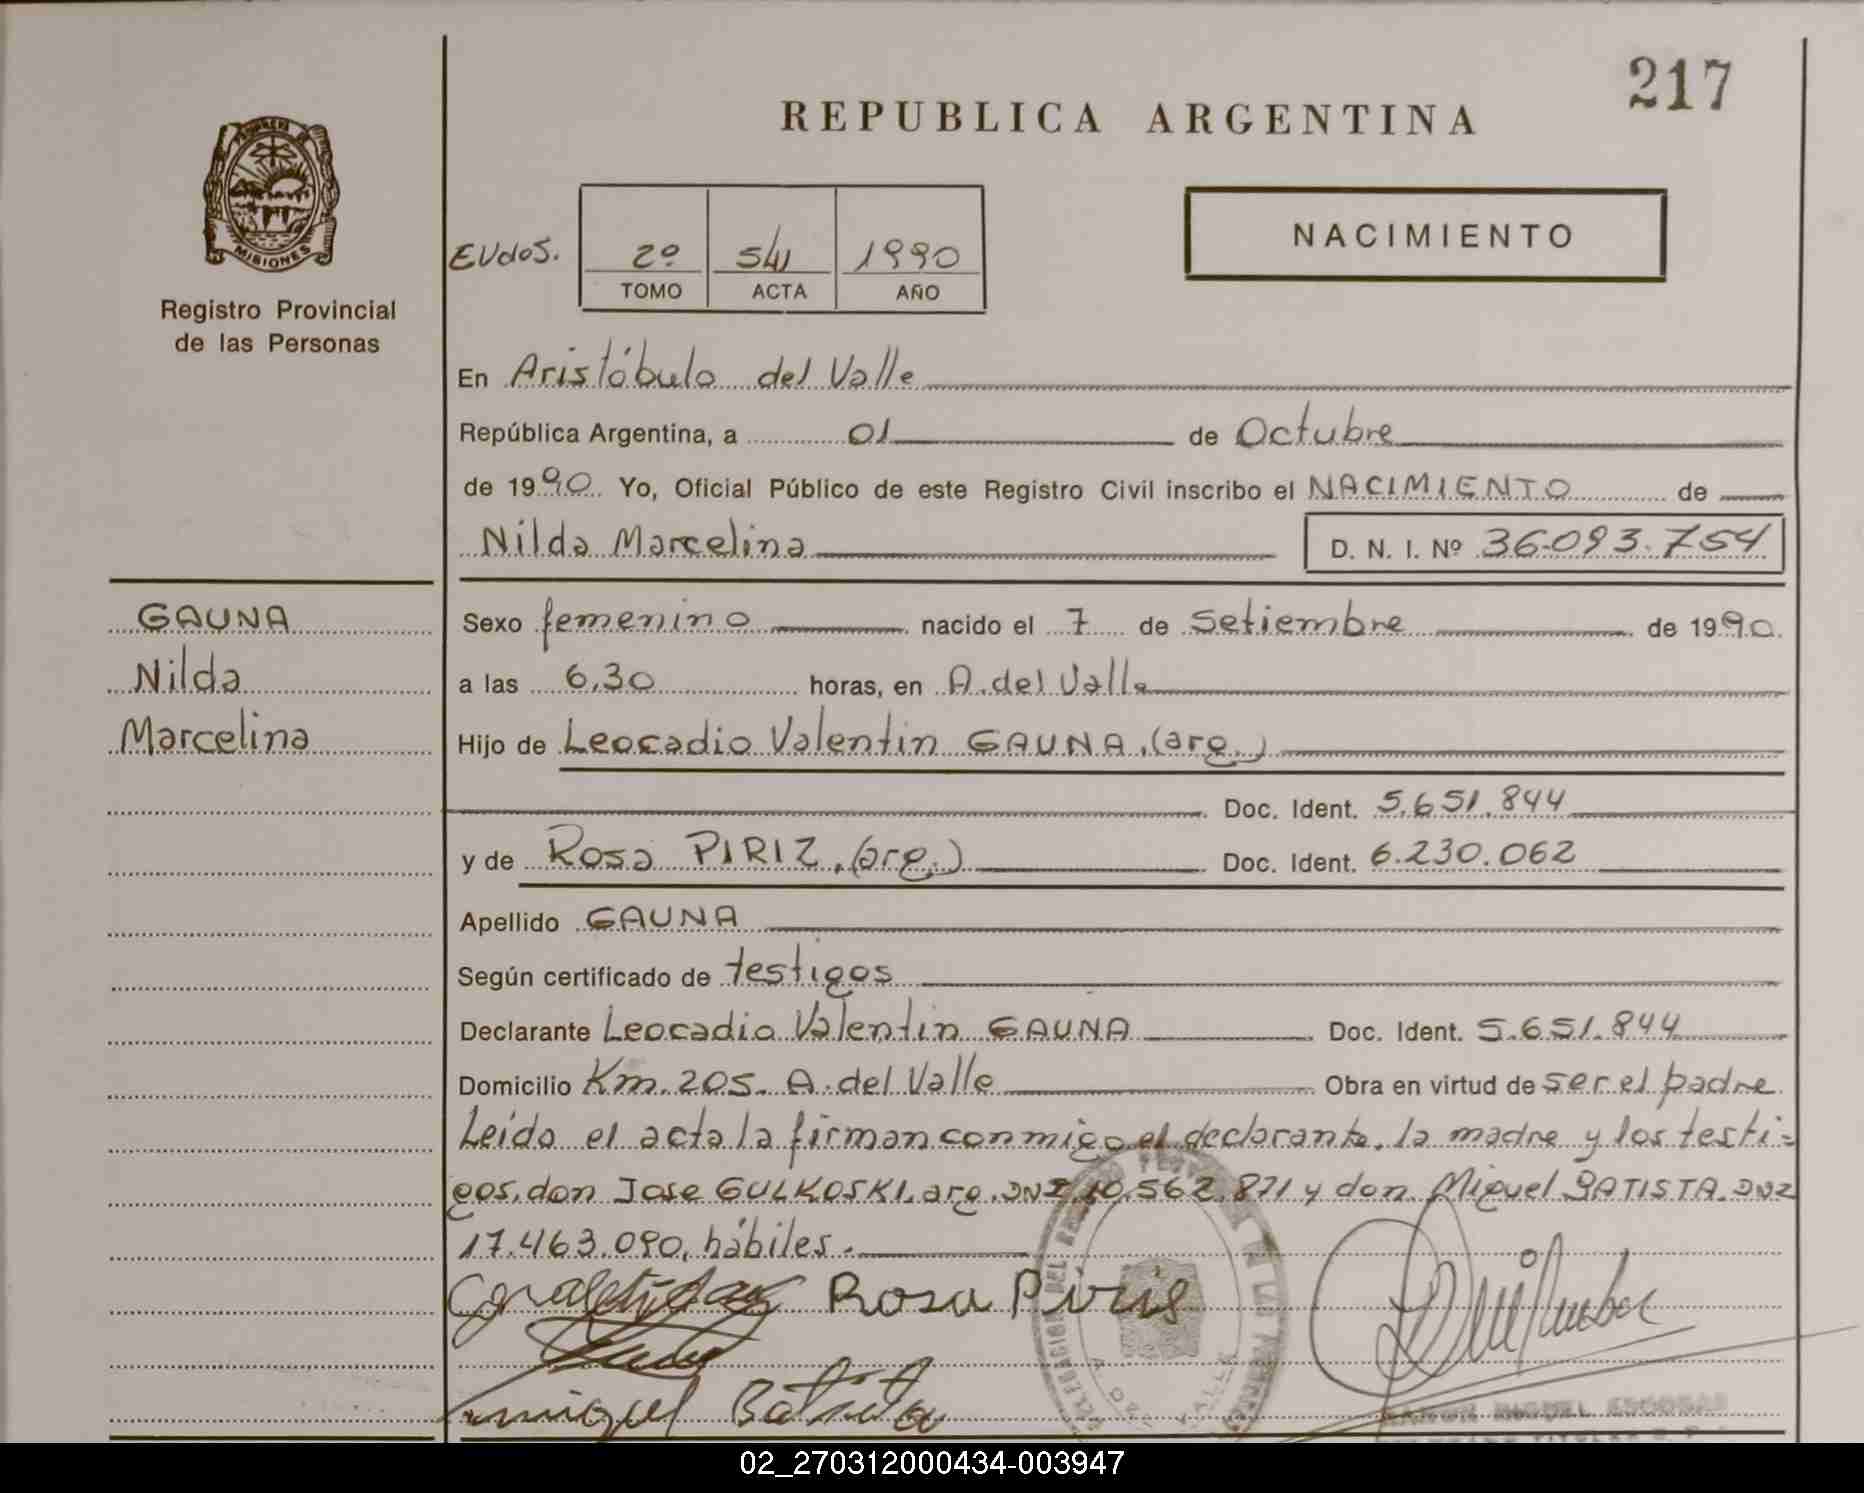 217
REPUBLICA ARGENTINA
MISIONES
Registro Provincial
de las Personas
EVdoS.
2º
1990
TOMO ACTA AÑO
NACIMIENTO
En Aristóbulo del Valle
República Argentina, a 01 de Octubre
de 1990. Yo, Oficial Público de este Registro Civil inscribo el NACIMIENTO de
Nilda Marcelina D. N. I. Nº 36.093.754
GAUNA
Nilda
Marcelina
Sexo femenino nacido el 7 de Setiembre de 1990.
a las 6,30 horas, en A. del Valle
Hijo de Leocadio Valentin GAUNA, (arg.)
Doc. Ident. 5.651.844
y de Rosa PIRIZ, (arg.) Doc. Ident. 6.230.062
Apellido GAUNA
Según certificado de testigos
Declarante Leocadio Valentin GAUNA Doc. Ident. 5.651.844
Domicilio Km. 205. A. del Valle Obra en virtud de ser el padre
Leída el acta la firman conmigo el declarante, la madre y los testi=
gos, don Jose GULKOSKI, arg. DNI 10.562.871 y don Miguel BATISTA. DNI
17.463.090, hábiles.
Rosa Piris
miguel Batista
RAMON MIGUEL ESCOBAR
02_270312000434-003947